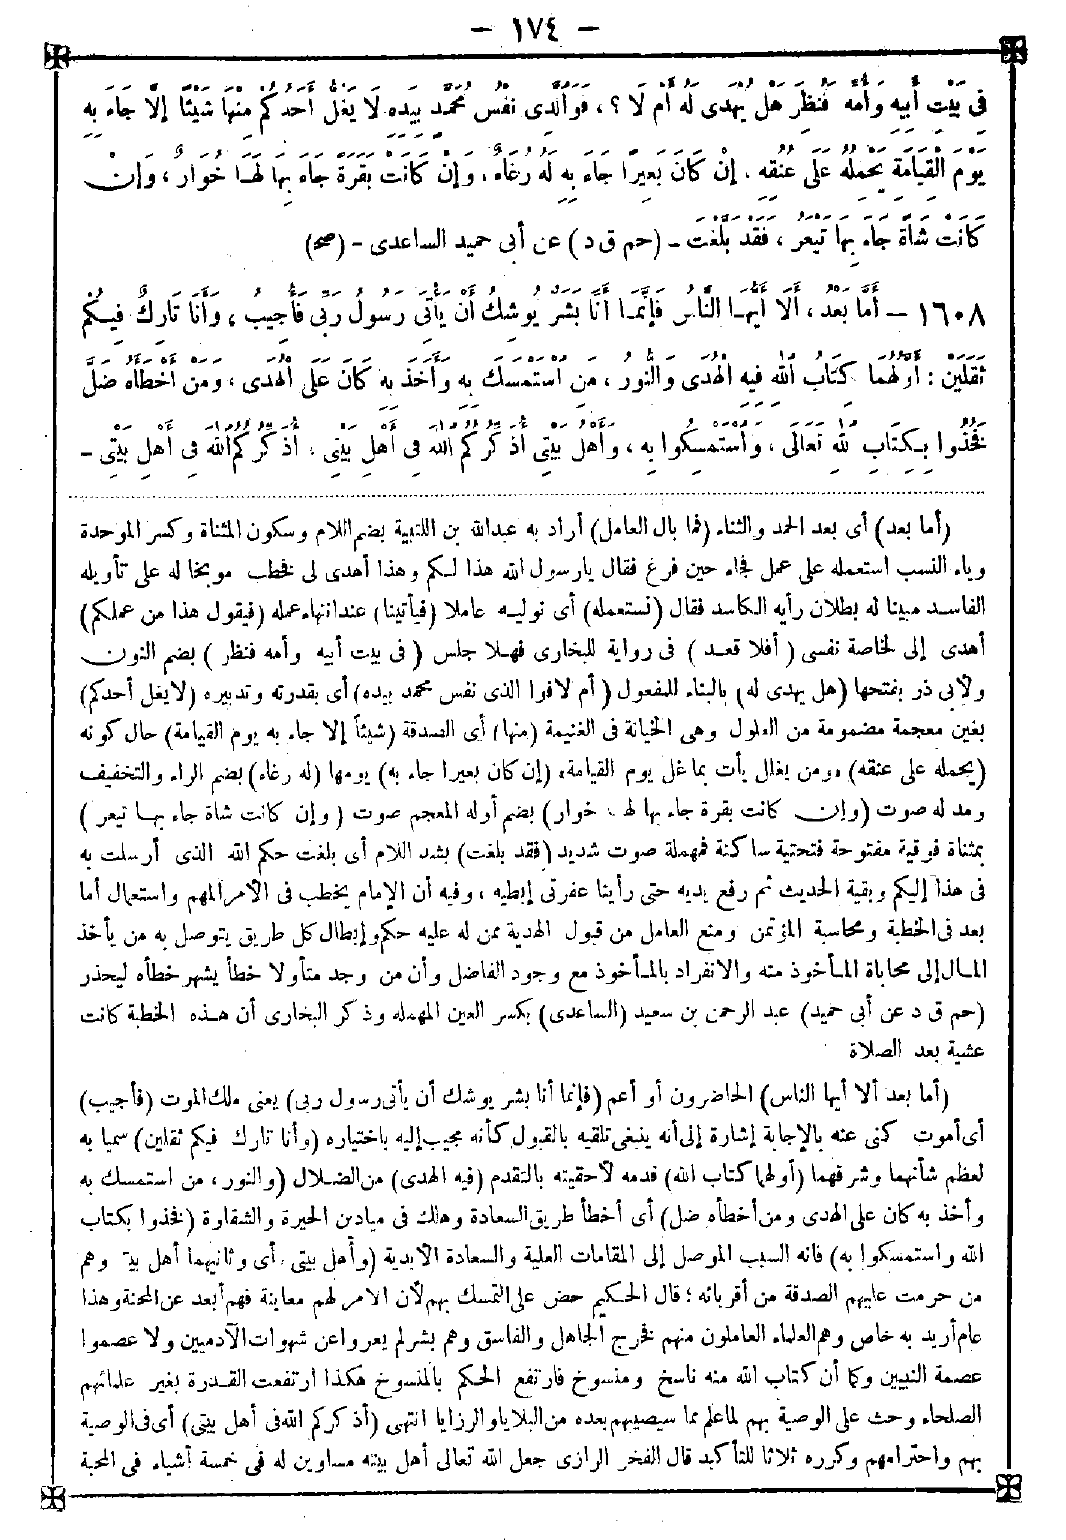 – ١٧٤ –
فِى بَيْتِ أَبِيهِ وَأُمِّهِ فَنَظَرَ هَلْ يُهْدَى لَهُ أَمْ لَا ؟ ، فَوَالَّذِى نَفْسُ مُحَمَّدٍ بِيَدِهِ لَا يَغُلُّ أَحَدُكُمْ مِنْهَا شَيْئًا إِلَّا جَاءَ بِهِ
يَوْمَ الْقِيَامَةِ يَحْمِلُهُ عَلَى عُنُقِهِ ، إِنْ كَانَ بَعِيرًا جَاءَ بِهِ لَهُ رُغَاءٌ ، وَإِنْ كَانَتْ بَقَرَةً جَاءَ بِهَا لَهَا خُوَارٌ ، وَإِنْ
كَانَتْ شَاةً جَاءَ بِهَا تَيْعَرُ ، فَقَدْ بَلَّغْتُ – (حم ق د) عن أبى حميد الساعدى – (صح)
١٦٠٨ – أَمَّا بَعْدُ ، أَلَا أَيُّهَا النَّاسُ فَإِنَّمَا أَنَا بَشَرٌ يُوشِكُ أَنْ يَأْتِىَ رَسُولُ رَبِّى فَأُجِيبُ ، وَأَنَا تَارِكٌ فِيكُمْ
ثَقَلَيْنِ : أَوَّلُهُمَا كِتَابُ اللهِ فِيهِ الْهُدَى وَالنُّورُ ، مَنِ اسْتَمْسَكَ بِهِ وَأَخَذَ بِهِ كَانَ عَلَى الْهُدَى ، وَمَنْ أَخْطَأَهُ ضَلَّ
فَخُذُوا بِكِتَابِ اللهِ تَعَالَى ، وَاسْتَمْسِكُوا بِهِ ، وَأَهْلُ بَيْتِى أُذَكِّرُكُمُ اللهَ فِى أَهْلِ بَيْتِى ، أُذَكِّرُكُمُ اللهَ فِى أَهْلِ بَيْتِى –
(أما بعد) أى بعد الحمد والثناء (فما بال العامل) أراد به عبدالله بن اللتبية بضم اللام وسكون المثناة وكسر الموحدة
وياء النسب استعمله على عمل فجاء حين فرغ فقال يارسول الله هذا لكم وهذا أهدى لى فخطب موبخا له على تأويله
الفاسد مبينا له بطلان رأيه الكاسد فقال (نستعمله) أى نوليه عاملا (فيأتينا) عند انتهاء عمله (فيقول هذا من عملكم)
أهدى إلى لخاصة نفسى (أفلا قعد) فى رواية للبخارى فهلا جلس (فى بيت أبيه وأمه فنظر) بضم النون
ولأبى ذر بفتحها (هل يهدى له) بالبناء للمفعول (أم لا فوا الذى نفس محمد بيده) أى بقدرته وتدبيره (لا يغل أحدكم)
بغين معجمة مضمومة من الغلول وهى الخيانة فى الغنيمة (منها) أى الصدقة (شيئاً إلا جاء به يوم القيامة) حال كونه
(يحمله على عنقه) «ومن يغلل يأت بما غل يوم القيامة» (إن كان بعيرا جاء به) يومها (له رغاء) بضم الراء والتخفيف
ومد له صوت (وإن كانت بقرة جاء بها لها خوار) بضم أوله المعجم صوت (وإن كانت شاة جاء بها تيعر)
بمثناة فوقية مفتوحة فتحتية ساكنة فمهملة صوت شديد (فقد بلغت) بشد اللام أى بلغت حكم الله الذى أرسلت به
فى هذا إليكم وبقية الحديث ثم رفع يديه حتى رأينا عفرتى إبطيه ، وفيه أن الإمام يخطب فى الأمر المهم واستعمال أما
بعد فى الخطبة ومحاسبة المؤتمن ومنع العامل من قبول الهدية ممن له عليه حكم وإبطال كل طريق يتوصل به من يأخذ
المال إلى محاباة المأخوذ منه والانفراد بالمأخوذ مع وجود الفاضل وأن من وجد متأولا خطأ يشهر خطأه ليحذر
(حم ق د عن أبى حميد) عبد الرحمن بن سعيد (الساعدى) بكسر العين المهمله وذكر البخارى أن هذه الخطبة كانت
عشية بعد الصلاة
(أما بعد ألا أيها الناس) الحاضرون أو أعم (فإنما أنا بشر يوشك أن يأتى رسول ربى) يعنى ملك الموت (فأجيب)
أى أموت كنى عنه بالإجابة إشارة إلى أنه ينبغى تلقيه بالقبول كأنه مجيب إليه باختياره (وأنا تارك فيكم ثقلين) سميا به
لعظم شأنهما وشرفهما (أولهما كتاب الله) قدمه لأحقيته بالتقدم (فيه الهدى) من الضلال (والنور ، من استمسك به
وأخذ به كان على الهدى ومن أخطأه ضل) أى أخطأ طريق السعادة وهلك فى ميادين الحيرة والشقاوة (فخذوا بكتاب
الله واستمسكوا به) فانه السبب الموصل إلى المقامات العلية والسعادة الأبدية (وأهل بيتى) أى وثانيهما أهل بيتى وهم
من حرمت عليهم الصدقة من أقربائه ؛ قال الحكيم حض على التمسك بهم لأن الامر لهم معاينة فهم أبعد عن المحنة وهذا
عام أريد به خاص وهم العلماء العاملون منهم فخرج الجاهل والفاسق وهم بشر لم يعروا عن شهوات الآدميين ولا عصموا
عصمة النبيين وكما أن كتاب الله منه ناسخ ومنسوخ فارتفع الحكم بالمنسوخ هكذا ارتفعت القدرة بغير علمائهم
الصلحاء وحث على الوصية بهم لما علم مما سيصيبهم بعده من البلايا والرزايا انتهى (أذكركم الله فى أهل بيتى) أى فى الوصية
بهم واحترامهم وكرره ثلاثا للتأكيد قال الفخر الرازى جعل الله تعالى أهل بيته مساوين له فى خمسة أشياء فى المحبة